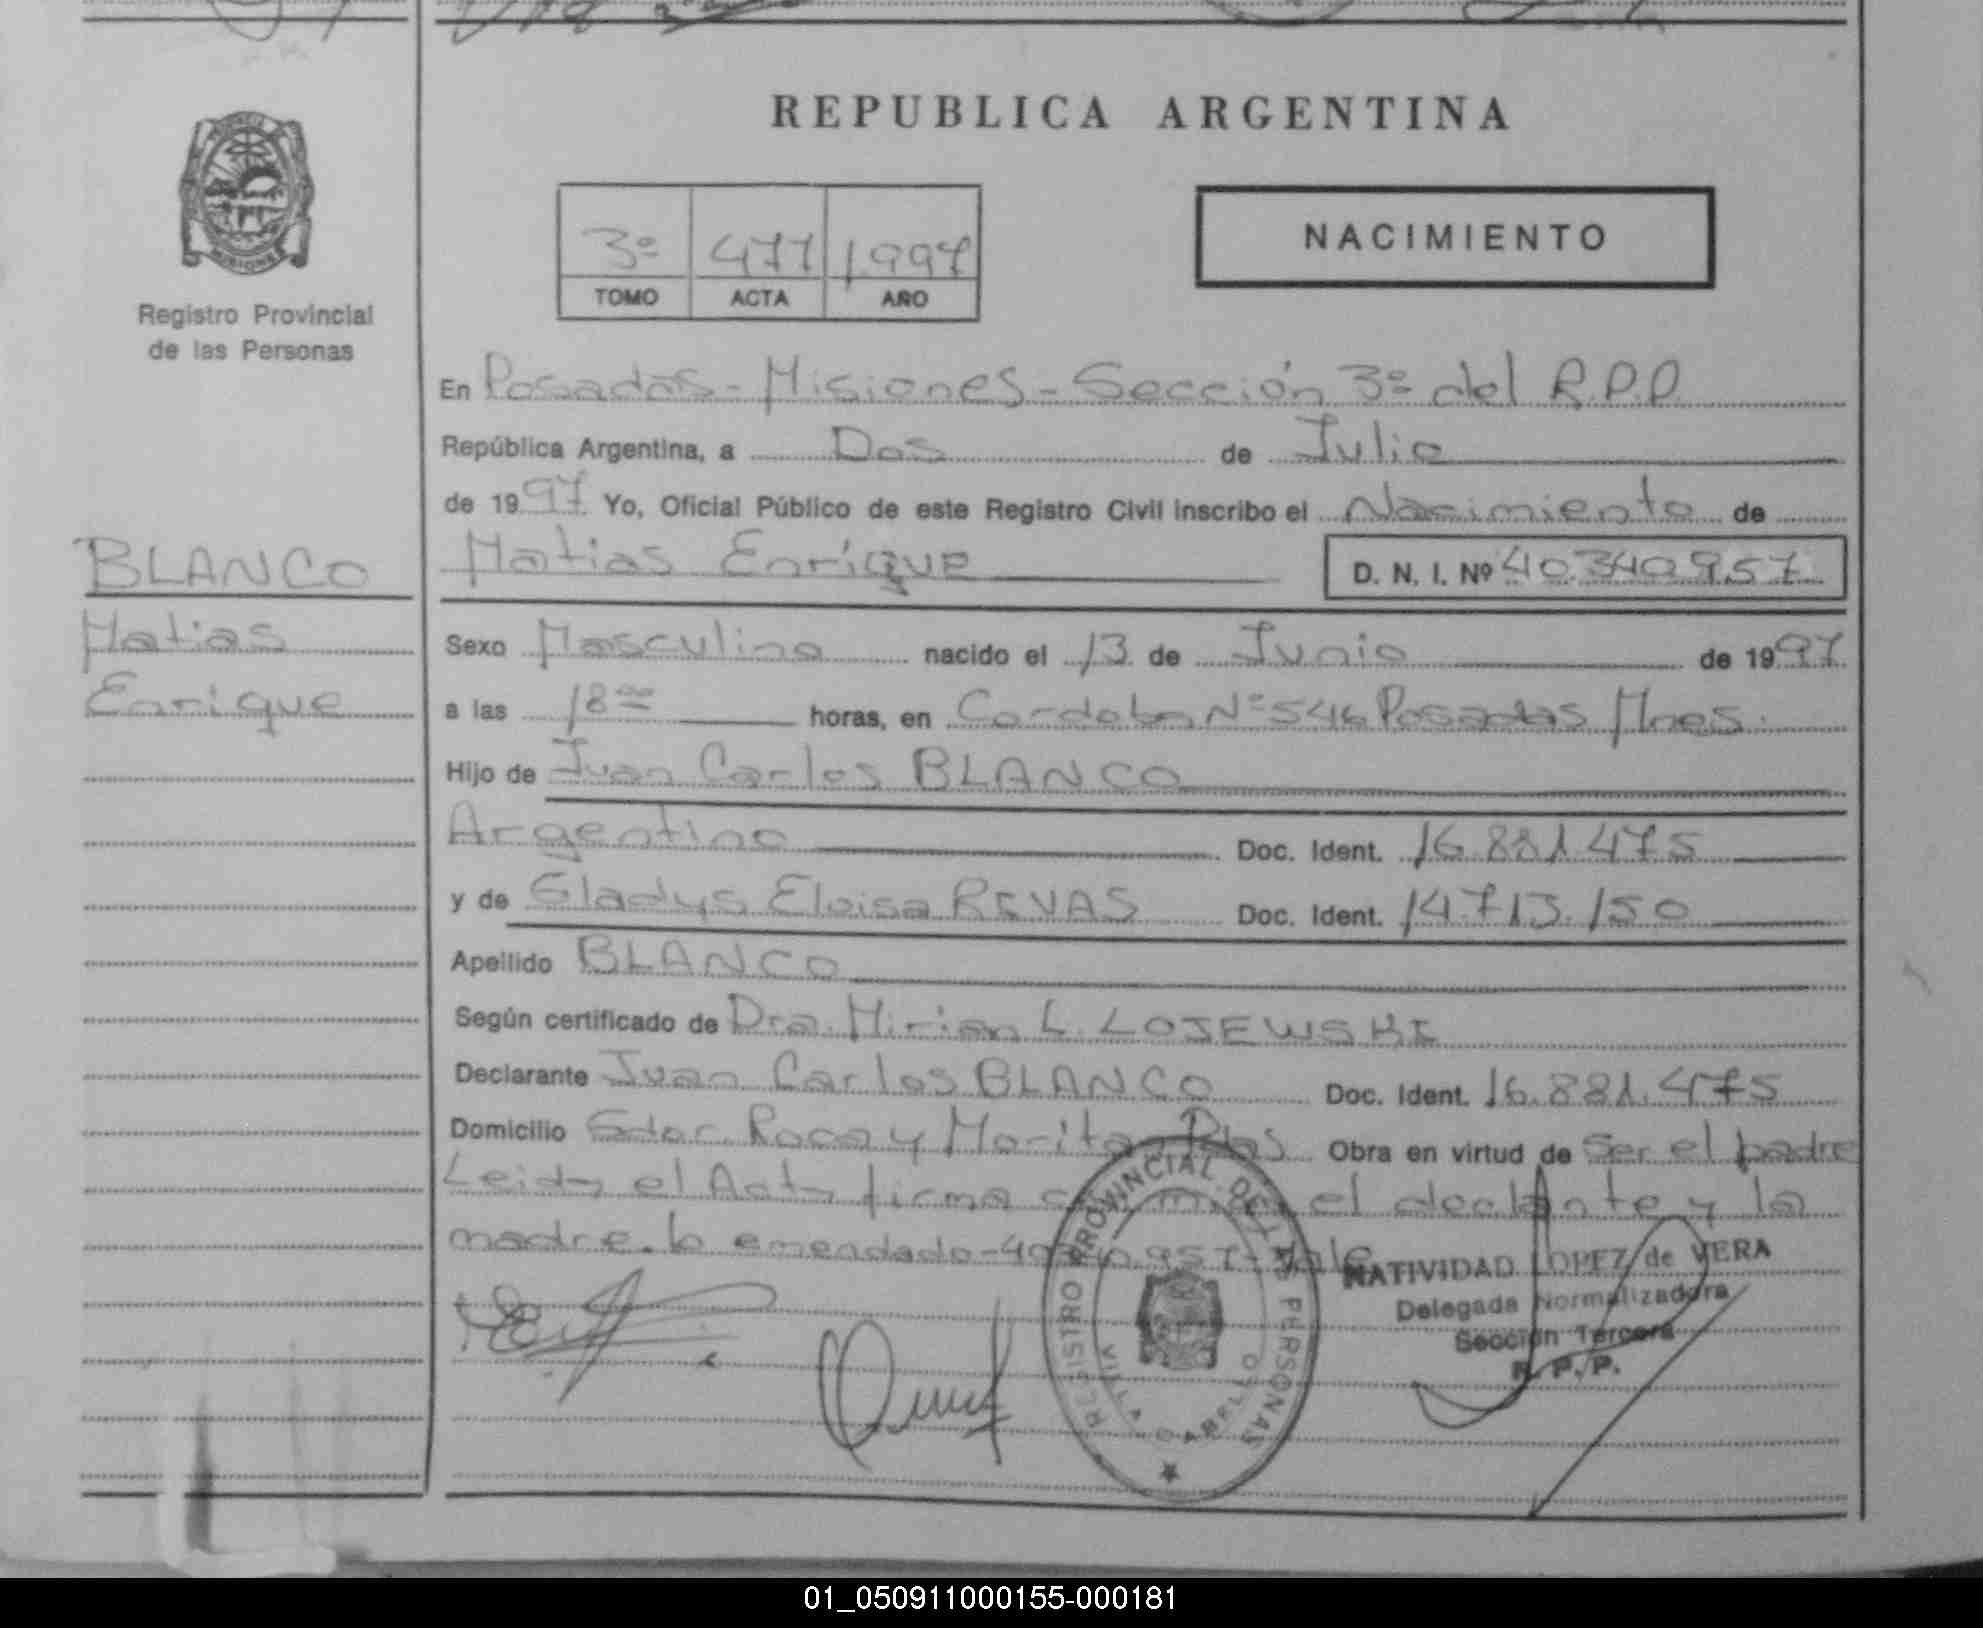 REPUBLICA ARGENTINA
NACIMIENTO
3º 477 1997
TOMO ACTA AÑO
Registro Provincial
de las Personas
BLANCO
Matias
Enrique
En Posadas - Misiones - Sección 3º del R.P.P.
República Argentina, a Dos de Julio
de 1997 Yo, Oficial Público de este Registro Civil inscribo el Nacimiento de
Matias Enrique D. N. I. Nº 40340957
Sexo Masculino nacido el 13 de Junio de 1997
a las 18 horas, en Cordoba Nº 546 Posadas Mnes.
Hijo de Juan Carlos BLANCO
Argentino Doc. Ident. 16.881.475
y de Gladys Eloisa RIVAS Doc. Ident. 14.713.150
Apellido BLANCO
Según certificado de Dra. Mirian L. LOJEWSKI
Declarante Juan Carlos BLANCO Doc. Ident. 16.881.475
Domicilio Gdor. Roca y Morita Pdas Obra en virtud de Ser el padre
Leida el Acta firma el declante y la
madre. lo emendado - 40340957 - Vale
REGISTRO PROVINCIAL DE LAS PERSONAS
VILLA CABELLO
NATIVIDAD LOPEZ de VERA
Delegada Normalizadora
Sección Tercera
R. P. P.
01_050911000155-000181